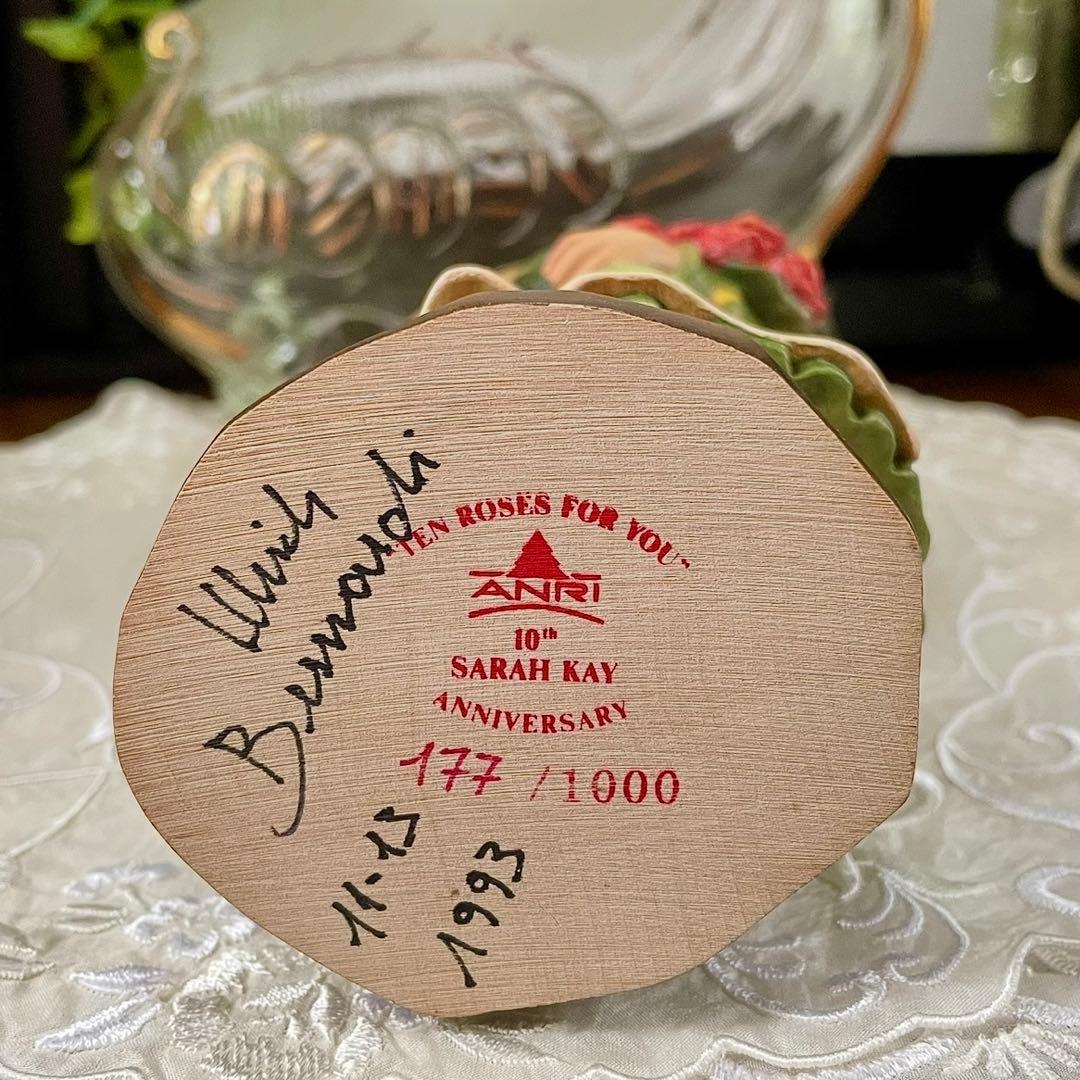 "TEN ROSES FOR YOU"
ANRI
10th
SARAH KAY
ANNIVERSARY
177 / 1000
Ulrich
Bernardi
11-13
1993